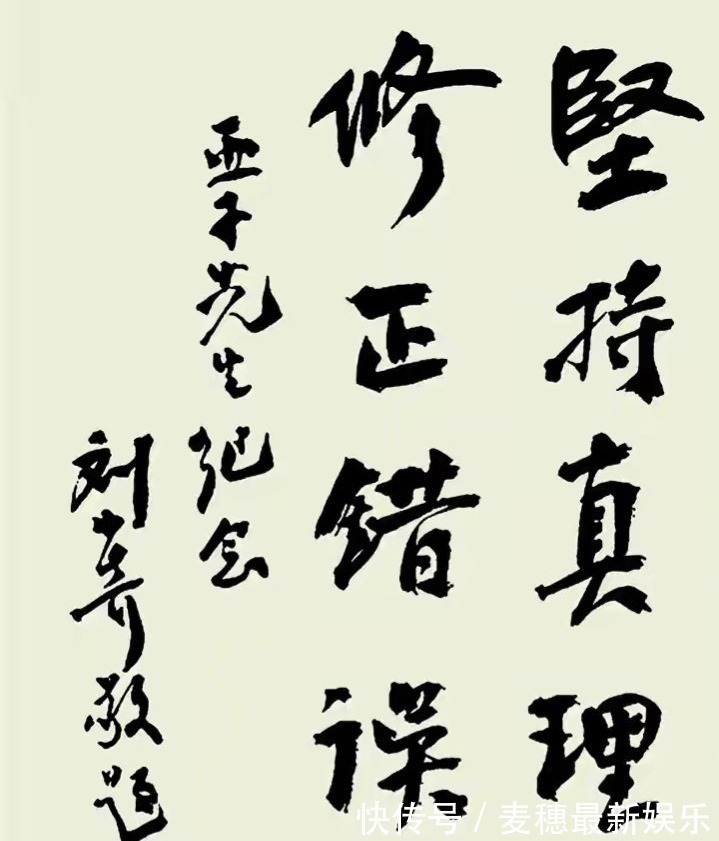 堅持真理
修正错误
亜子先生纪念
刘少奇敬题
快传号 / 麦穗最新娱乐